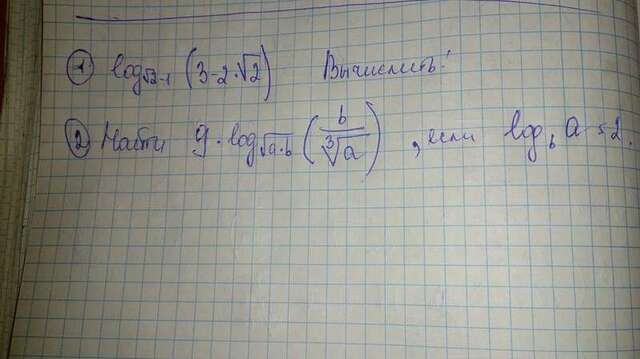 ① log_{√2-1} (3-2·√2) Вычислить!
② Найти 9·log_{√a·b} (b/∛a), если log_b a = 2.